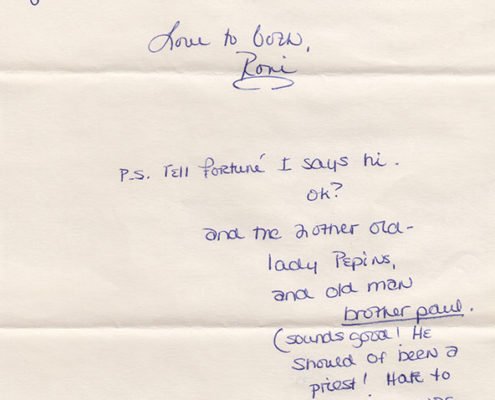 Love to both,
Roni
P.S. Tell Fortuné I says hi.
ok?
and the 2 other old-
lady Pepins,
and old man
brother paul.
(sounds good! He
should of been a
priest! Hate to